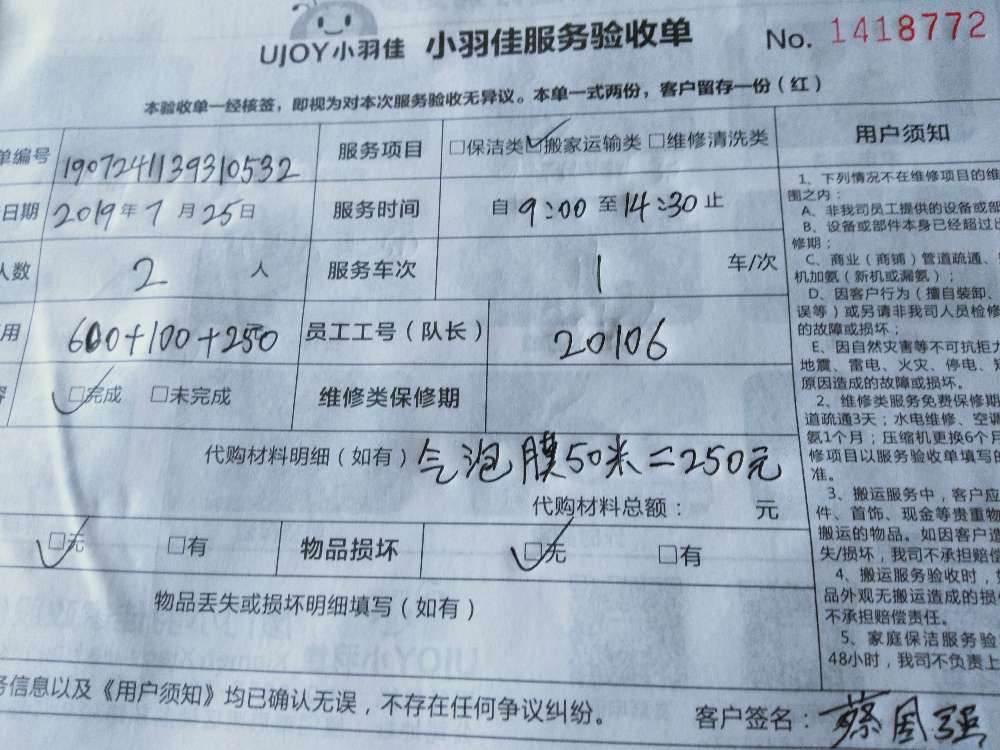 UJOY小羽佳 小羽佳服务验收单 No. 1418772
本验收单一经核签，即视为对本次服务验收无异议。本单一式两份，客户留存一份（红）
单编号 1907241139310532 服务项目 □保洁类 ☑搬家运输类 □维修清洗类
日期 2019年7月25日 服务时间 自9:00至14:30止
人数 2 人 服务车次 1 车/次
用 600+100+250 员工工号（队长） 20106
☑完成 □未完成 维修类保修期
代购材料明细（如有） 气泡膜50米=250元
代购材料总额： 元
☑无 □有 物品损坏 ☑无 □有
物品丢失或损坏明细填写（如有）
务信息以及《用户须知》均已确认无误，不存在任何争议纠纷。
客户签名：蔡国强
用户须知
1、下列情况不在维修项目的维
围之内：
A、非我司员工提供的设备或部
B、设备或部件本身已经超过
修期；
C、商业（商铺）管道疏通、
机加氨（新机或漏氨）；
D、因客户行为（擅自装卸、
误等）或另请非我司人员检修
的故障或损坏；
E、因自然灾害等不可抗拒力
地震、雷电、火灾、停电、
原因造成的故障或损坏。
2、维修类服务免费保修期
道疏通3天；水电维修、空调
氨1个月；压缩机更换6个月
修项目以服务验收单填写的
准。
3、搬运服务中，客户应
件、首饰、现金等贵重物
搬运的物品。如因客户遗
失/损坏，我司不承担赔偿
4、搬运服务验收时，
品外观无搬运造成的损
不承担赔偿责任。
5、家庭保洁服务验
48小时，我司不负责上